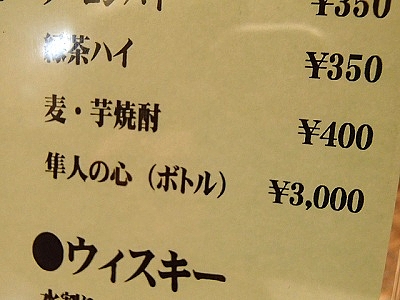 ¥350
緑茶ハイ ¥350
麦・芋焼酎 ¥400
隼人の心（ボトル） ¥3,000
●ウィスキー